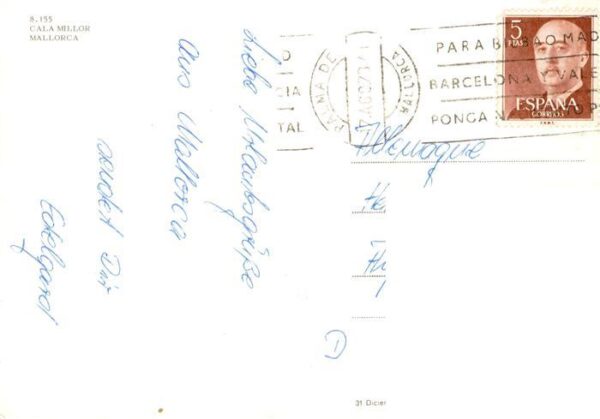 8.155
CALA MILLOR
MALLORCA
Liebe Urlaubsgrüße
aus Mallorca
sendet Dir
Edelgard
PALMA DE
MALLORCA
PARA BILBAO MAD
BARCELONA Y VALE
PONGA
CIA
TAL
5
PTAS
ESPAÑA
CORREOS
Allemagne
D
31 Dicier